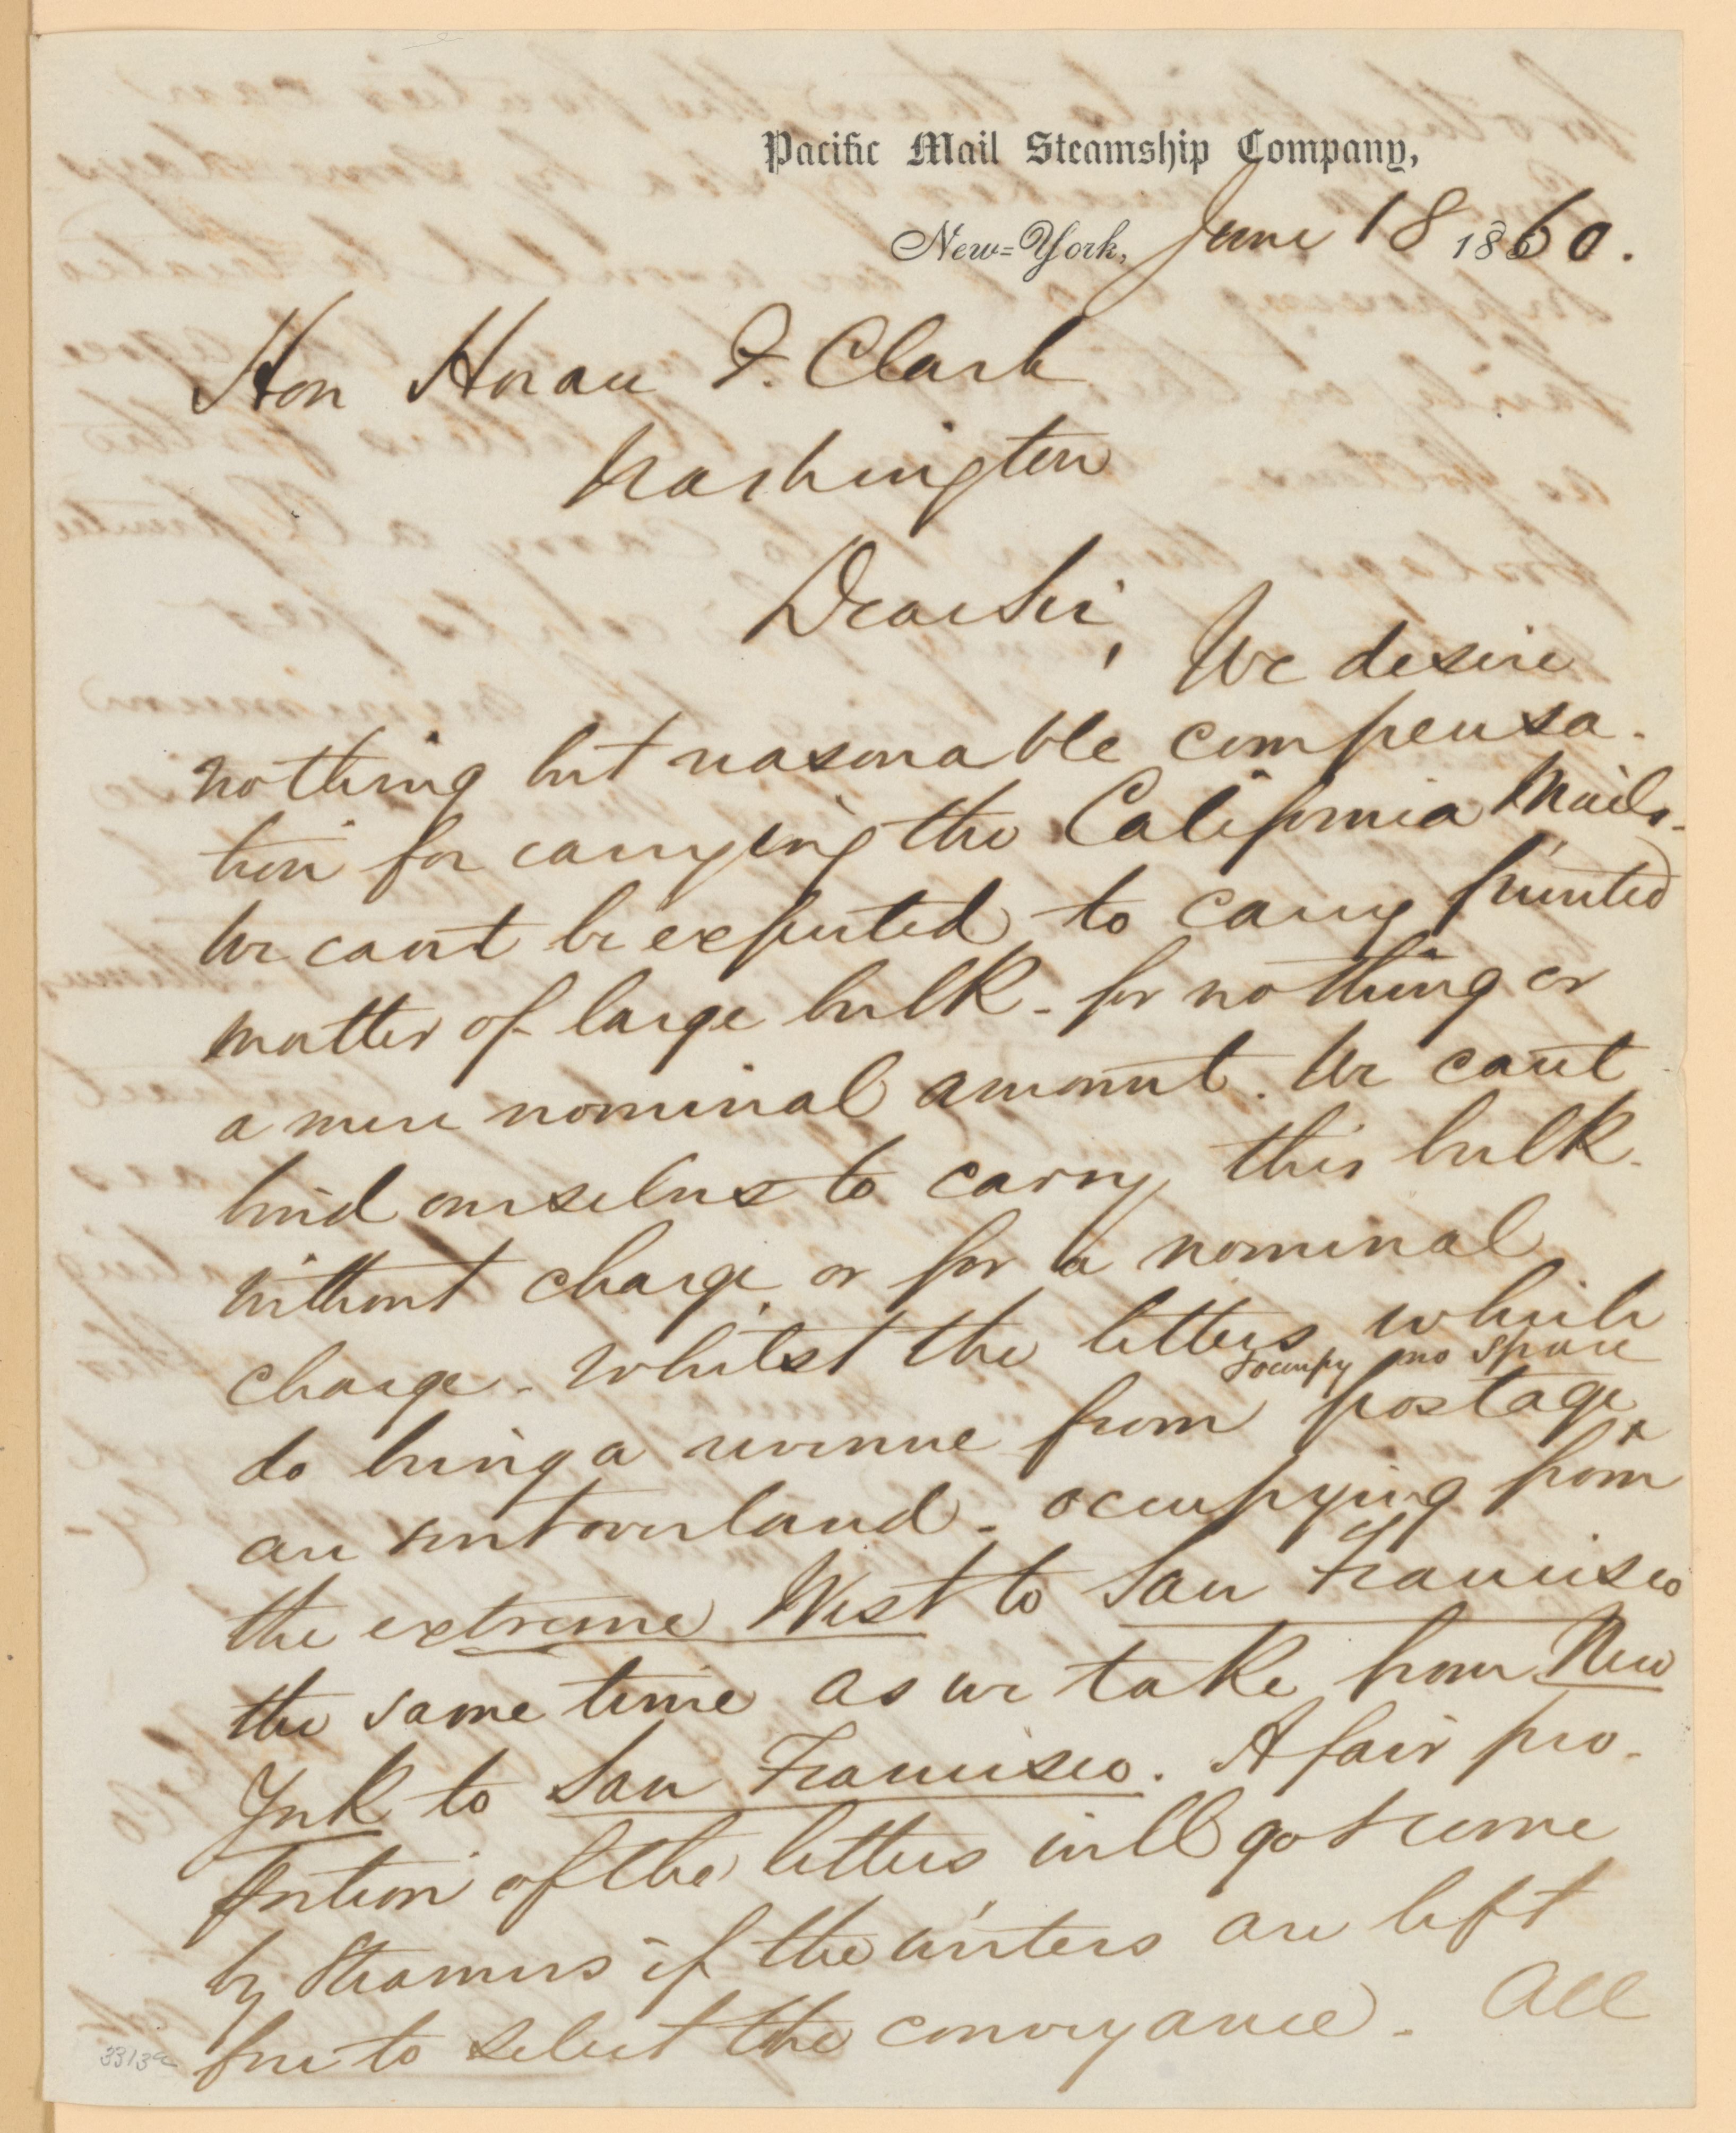 Pacific Mail Steamship Company,
New=York, June 18 1860.
Hon Horace F. Clark
Washington
Dear Sir,
We desire
nothing but reasonable compensa-
tion for carrying the California Mails.
We cant be expected to carry printed
matter of large bulk - for nothing or
a mere nominal amount. We cant
bind ourselves to carry this bulk
without charge or for a nominal
charge - whilst the letters which
occupy no space
do bring a revenue from postage
are sent overland - occupying from
the extreme West to San Francisco
the same time as we take from New
York to San Francisco. A fair pro-
portion of the letters will go & come
by Steamers if the writers are left
free to select the conveyance. All
3313a